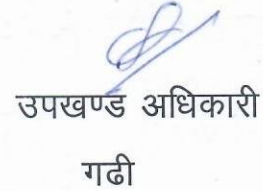 उपखण्ड अधिकारी
गढी